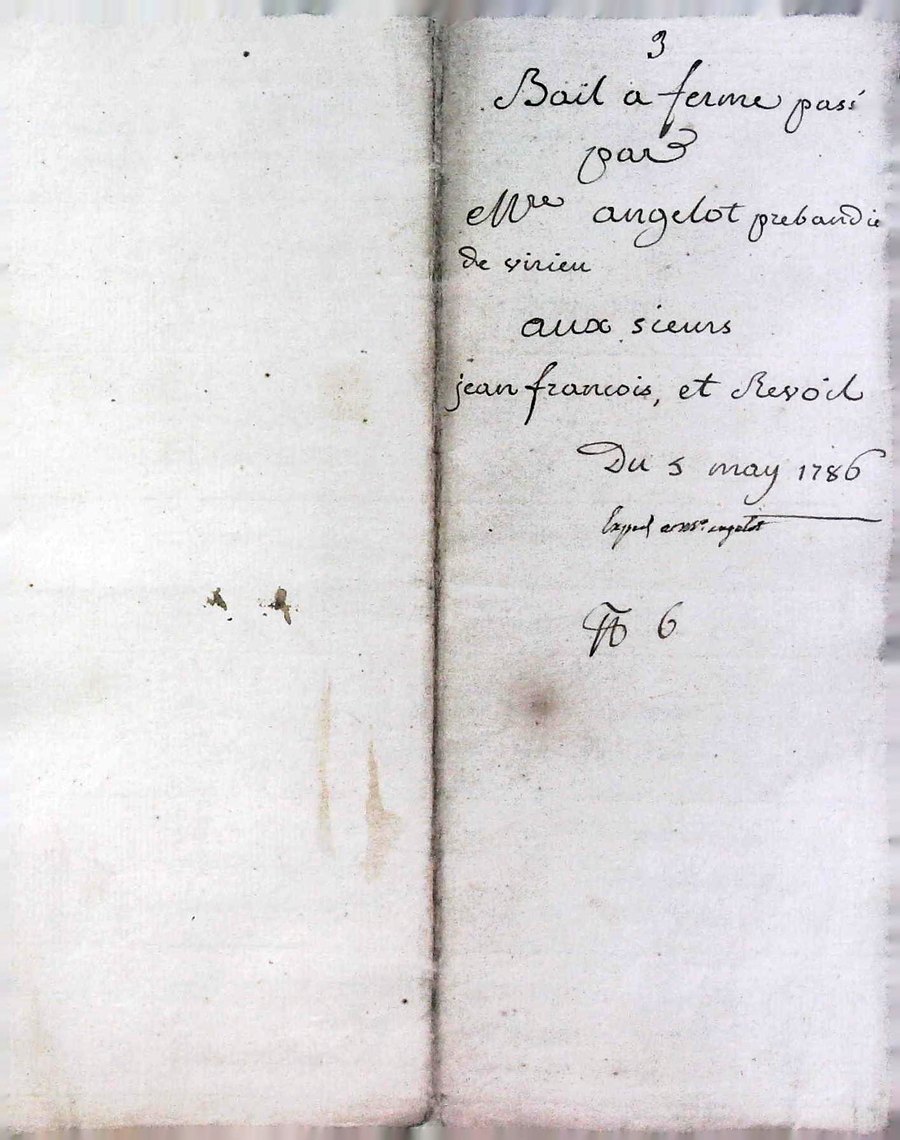 3
Bail a ferme passé
par
Mre angelot prebandié
de virieu
aux sieurs
jean francois, et Revoil
Du 5 may 1786
angelot
6